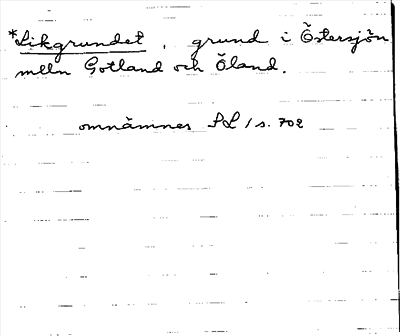 *Likgrundet, grund i Östersjön
mlln Gotland och Öland.
omnämnes SL 1 s. 702